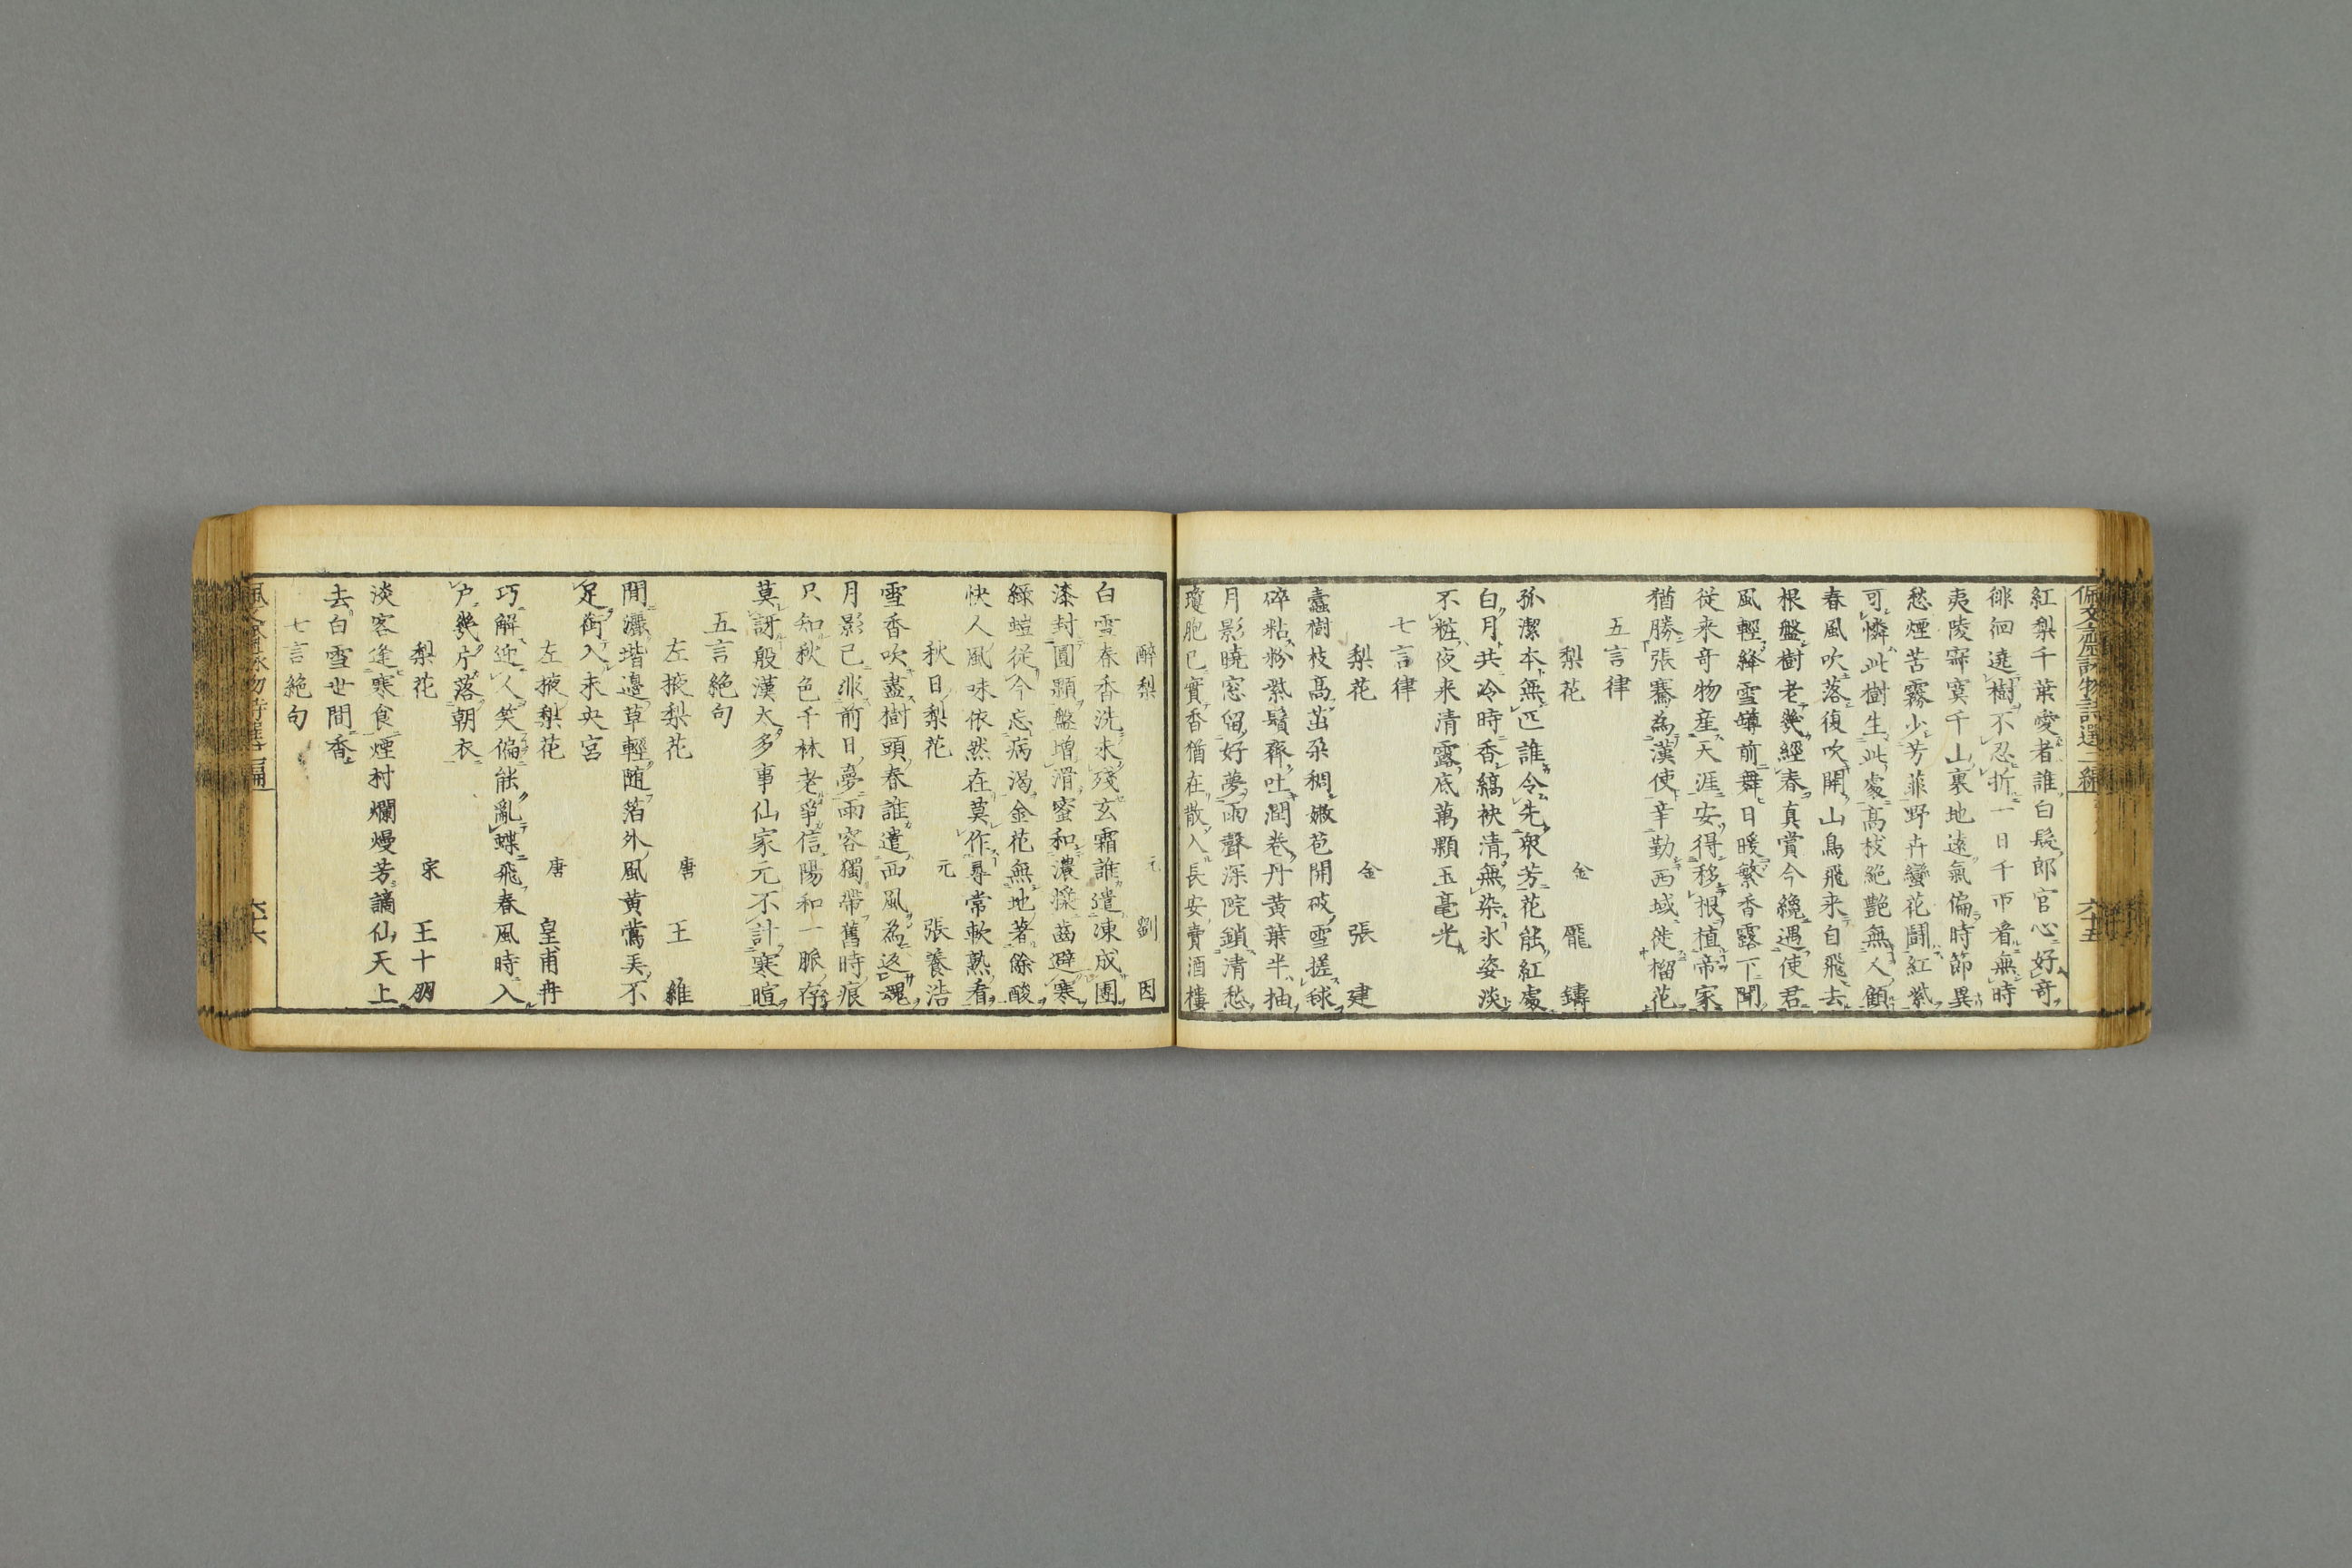 佩文齋詠物詩選二編
六十五
紅梨千葉愛者誰白髮郎官心好奇
徘徊遶樹不忍折一日千帀看無時
夷陵寂寞千山裏地遠氣偏時節異
愁煙苦霧少芳菲野卉蠻花鬪紅紫
可憐此樹生此處高枝絕艷無人顧
春風吹落復吹開山鳥飛来自飛去
根盤樹老幾經春真賞今纔遇使君
風輕絳雪罇前舞日暖繁香露下聞
從来奇物産天涯安得移根植帝家
猶勝張騫為漢使辛勤西域徙榴花
五言律
梨花 金 龎鑄
孤潔本無匹誰令先衆芳花能紅處
白月共冷時香縞袂清無染氷姿淡
不粧夜来清露底萬顆玉毫光
七言律
梨花 金 張建
蠹樹枝高茁朶稠嫩苞開破雪搓毬
碎粘粉紫鬚齊吐潤卷丹黄葉半抽
月影曉窓留好夢雨聲深院鎖清愁
瓊胞已實香猶在散入長安賣酒樓
醉梨 元 劉因
白雪春香洗氷殘玄霜誰遣凍成團
漆封圓顆盤增滑蜜和濃漿齒避寒
綠螘從今忘病渴金花無地著餘酸
快人風味依然在莫作尋常軟熟看
秋日梨花 元 張養浩
雪香吹盡樹頭春誰遣西風為返魂
月影已非前日夢雨容獨帶舊時痕
只知秋色千林老爭信陽和一脈存
莫訝殷漢太多事仙家元不計寒暄
五言絕句
左掖梨花 唐 王維
閒灑堦邉草輕随箔外風黄鶯弄不
足銜入未央宮
左掖梨花 唐 皇甫冉
巧解迎人笑偏能亂蝶飛春風時入
户幾片落朝衣
梨花 宋 王十朋
淡客逢寒食煙村爛熳芳謫仙天上
去白雪世間香
七言絕句
六十六